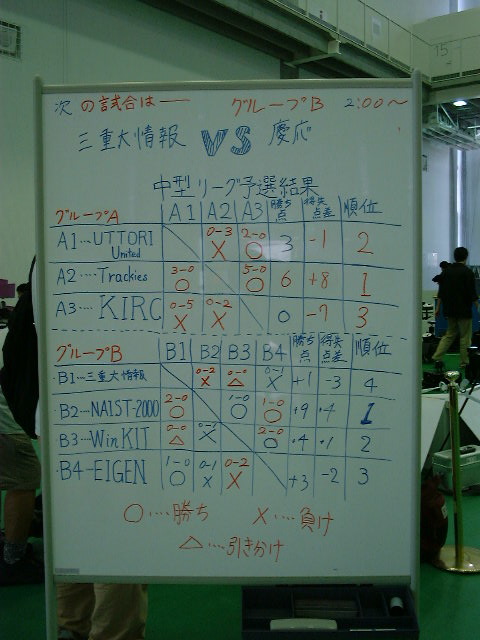 次の試合は── グループB 2:00~
三重大情報 VS 慶応
中型リーグ予選結果
グループA A1 A2 A3 勝ち点 得失点差 順位
A1…UTTORI United 0-3 X 2-0 ○ 3 -1 2
A2…Trackies 3-0 ○ 5-0 ○ 6 +8 1
A3…KIRC 0-5 X 0-2 X 0 -7 3
グループB B1 B2 B3 B4 勝ち点 得失点差 順位
B1…三重大情報 0-2 X 0-0 △ 0-1 X +1 -3 4
B2…NAIST-2000 2-0 ○ 1-0 ○ 1-0 ○ +9 +4 1
B3…WinKIT 0-0 △ 0-1 X 2-0 ○ +4 +1 2
B4─EIGEN 1-0 ○ 0-1 X 0-2 X +3 -2 3
○…勝ち X…負け
△…引き分け